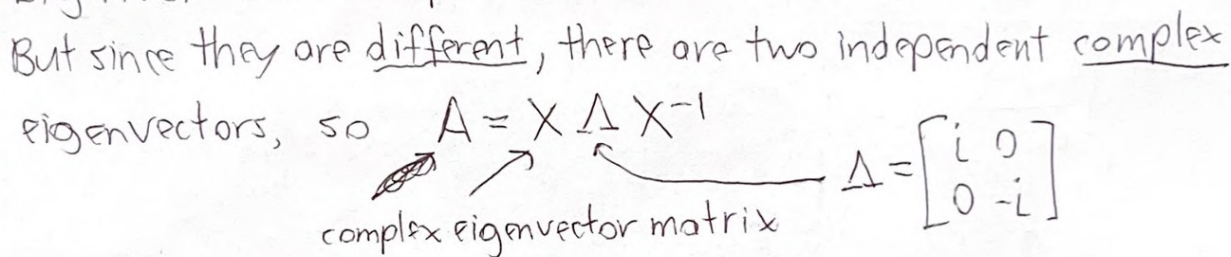 But since they are different, there are two independent complex
eigenvectors, so A = X Λ X⁻¹
Λ = [i 0
0 -i]
complex eigenvector matrix